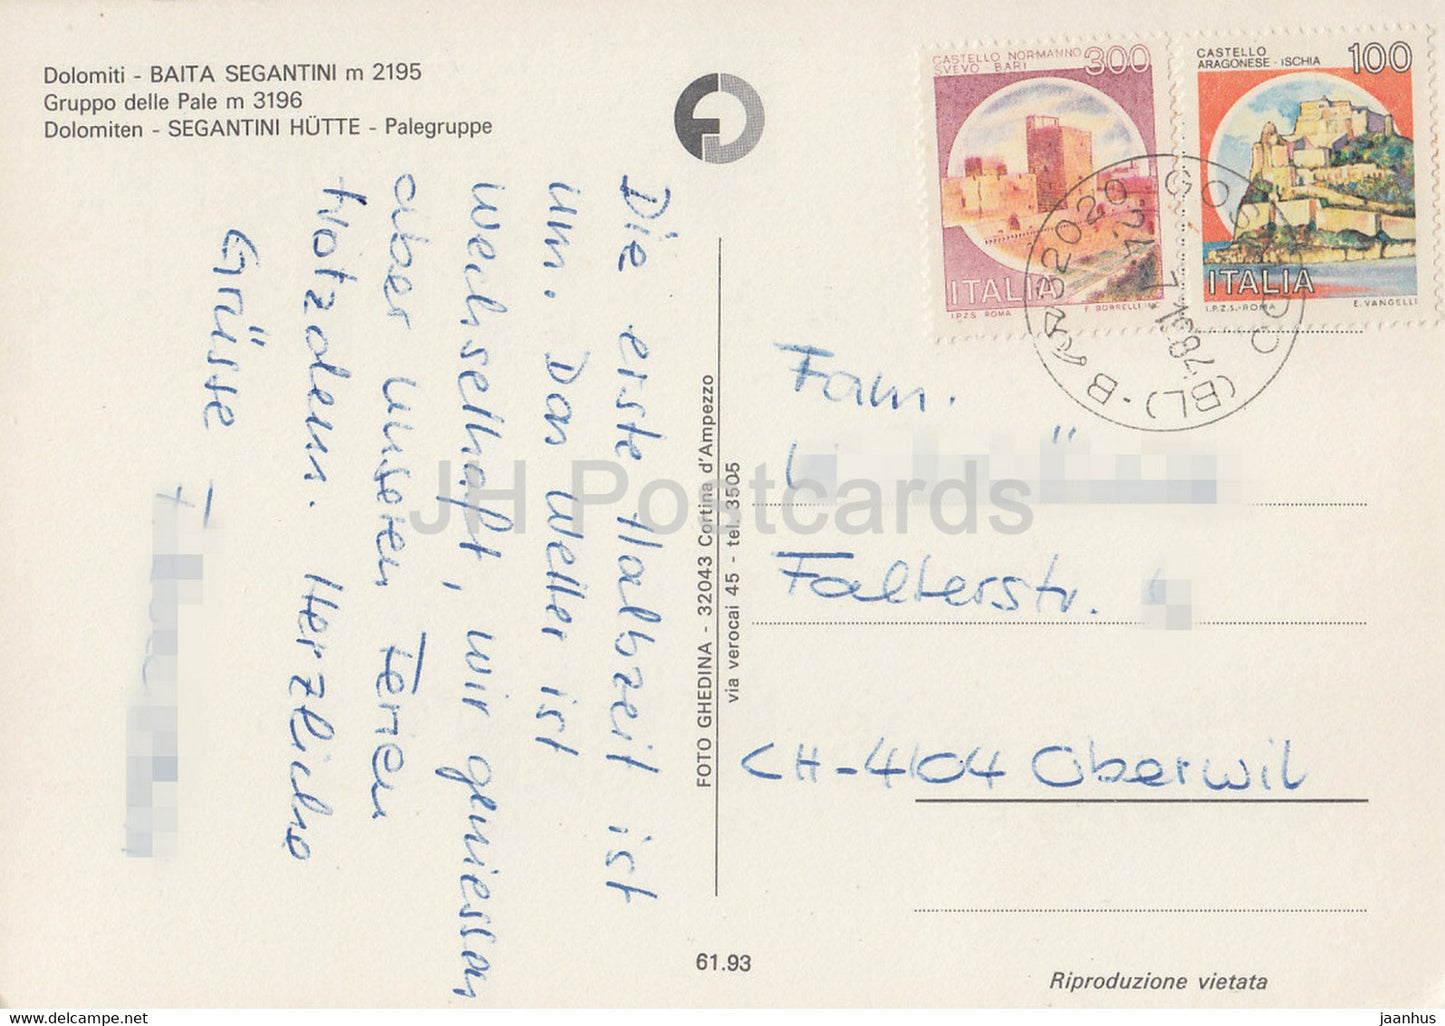 Dolomiti - BAITA SEGANTINI m 2195
Gruppo delle Pale m 3196
Dolomiten - SEGANTINI HÜTTE - Palegruppe
Die erste Halbzeit ist
um. Das Wetter ist
wechselhaft, wir geniessen
aber unseren Ferien
trotzdem. Herzliche
Grüsse
FOTO GHEDINA - 32043 Cortina d'Ampezzo
via verocai 45 - tel. 3505
61.93
CASTELLO NORMANNO
SVEVO BARI
300
ITALIA
I.P.Z.S. ROMA
CASTELLO
ARAGONESE - ISCHIA
100
ITALIA
I.P.Z.S.-ROMA
E. VANGELLI
32020
(BL) - B
Fam.
Falterstr.
CH-4104 Oberwil
Riproduzione vietata
JH Postcards
www.delcampe.net
jaanhus